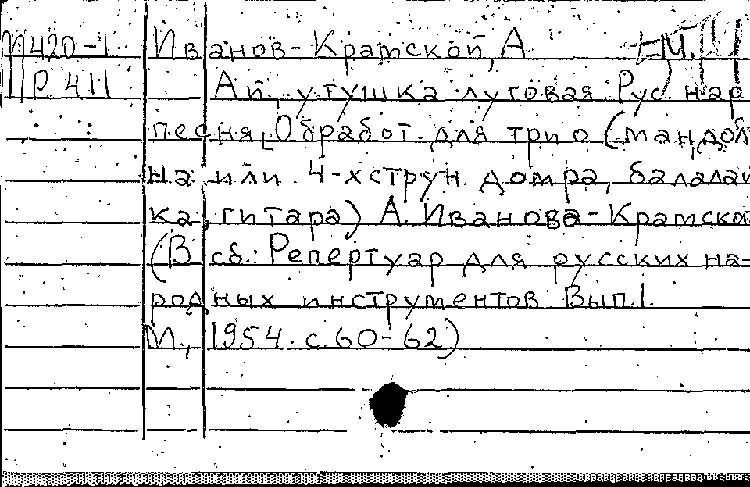 М420-1 Иванов-Крамской, А.
Пр 411 Ай, утушка луговая Рус нар
песня. Обработ. для трио (мандол
на или 4-х струн домра, балалай
ка, гитара) А. Иванова-Крамско
(В сб: Репертуар для русских на-
родных инструментов. Вып. 1.
М., 1954. с. 60-62)